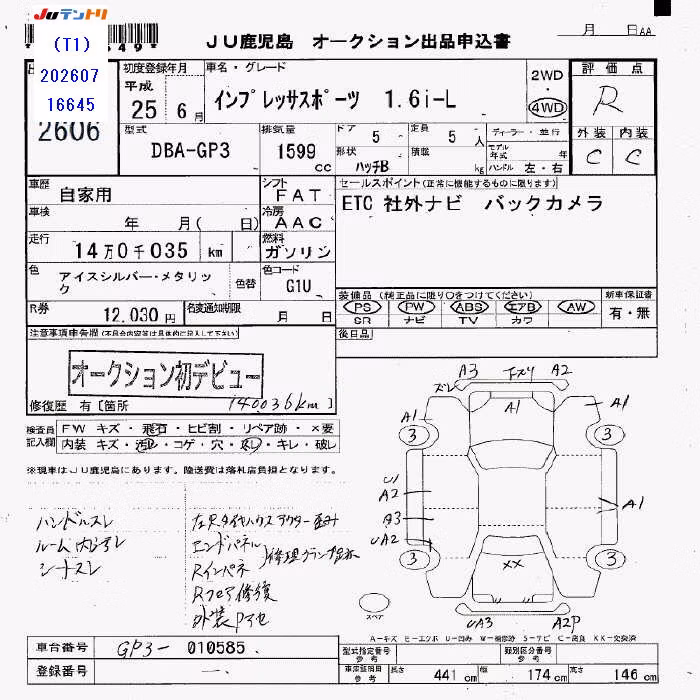 JUテントリ
(T1)
202607
16645
2606
JU鹿児島 オークション出品申込書
月 日AA
初度登録年月
平成
25 6月
車名・グレード
インプレッサスポーツ 1.6i-L
2WD
4WD
評価点
R
外装 内装
C C
型式
DBA-GP3
排気量
1599
cc
ドア 5
定員 5 人
形状 ハッチB
積載 kg
ディーラー・並行
モデル年式 年
ハンドル 左・右
車歴
自家用
シフト
FAT
車検
年 月( 日)
冷房
AAC
走行
14万0千035 km
燃料
ガソリン
色
アイスシルバー・メタリック
色替
色コード
G1U
R券
12,030円
名変通知期限
月 日
セールスポイント(正常に機能するものに限ります)
ETC 社外ナビ バックカメラ
装備品(純正品に限り○をつけてください)
PS PW ABS エアB AW
SR ナビ TV カワ
新車保証書
有・無
後日品
注意事項車告欄(不具合内容等は具体的に記入して下さい)
オークション初デビュー
修復歴 有[箇所 140036km]
検査員
記入欄
FW キズ・飛石・ヒビ割・リペア跡・×要
内装 キズ・汚れ・コゲ・穴・スレ・キレ・破レ
※現車はJU鹿児島にあります。陸送費は落札店負担となります。
ハンドルスレ
ルーム内汚レ
シートスレ
エンドパネル
Rインパネ
Rフロア修復
A3 下スリ A2
ズレ
A1 A1 A1
3 3
U1
A2
A3
UA2
A1
3 3
××
UA3 A2P
スペア
A-キズ H-エクボ U-凹み W-補修跡 S-サビ C-腐食 XX-交換済
車台番号
GP3- 010585
登録番号
型式指定番号
参考
類別区分番号
参考
車検証明用
参考
長さ 441 cm
幅 174 cm
高さ 146 cm